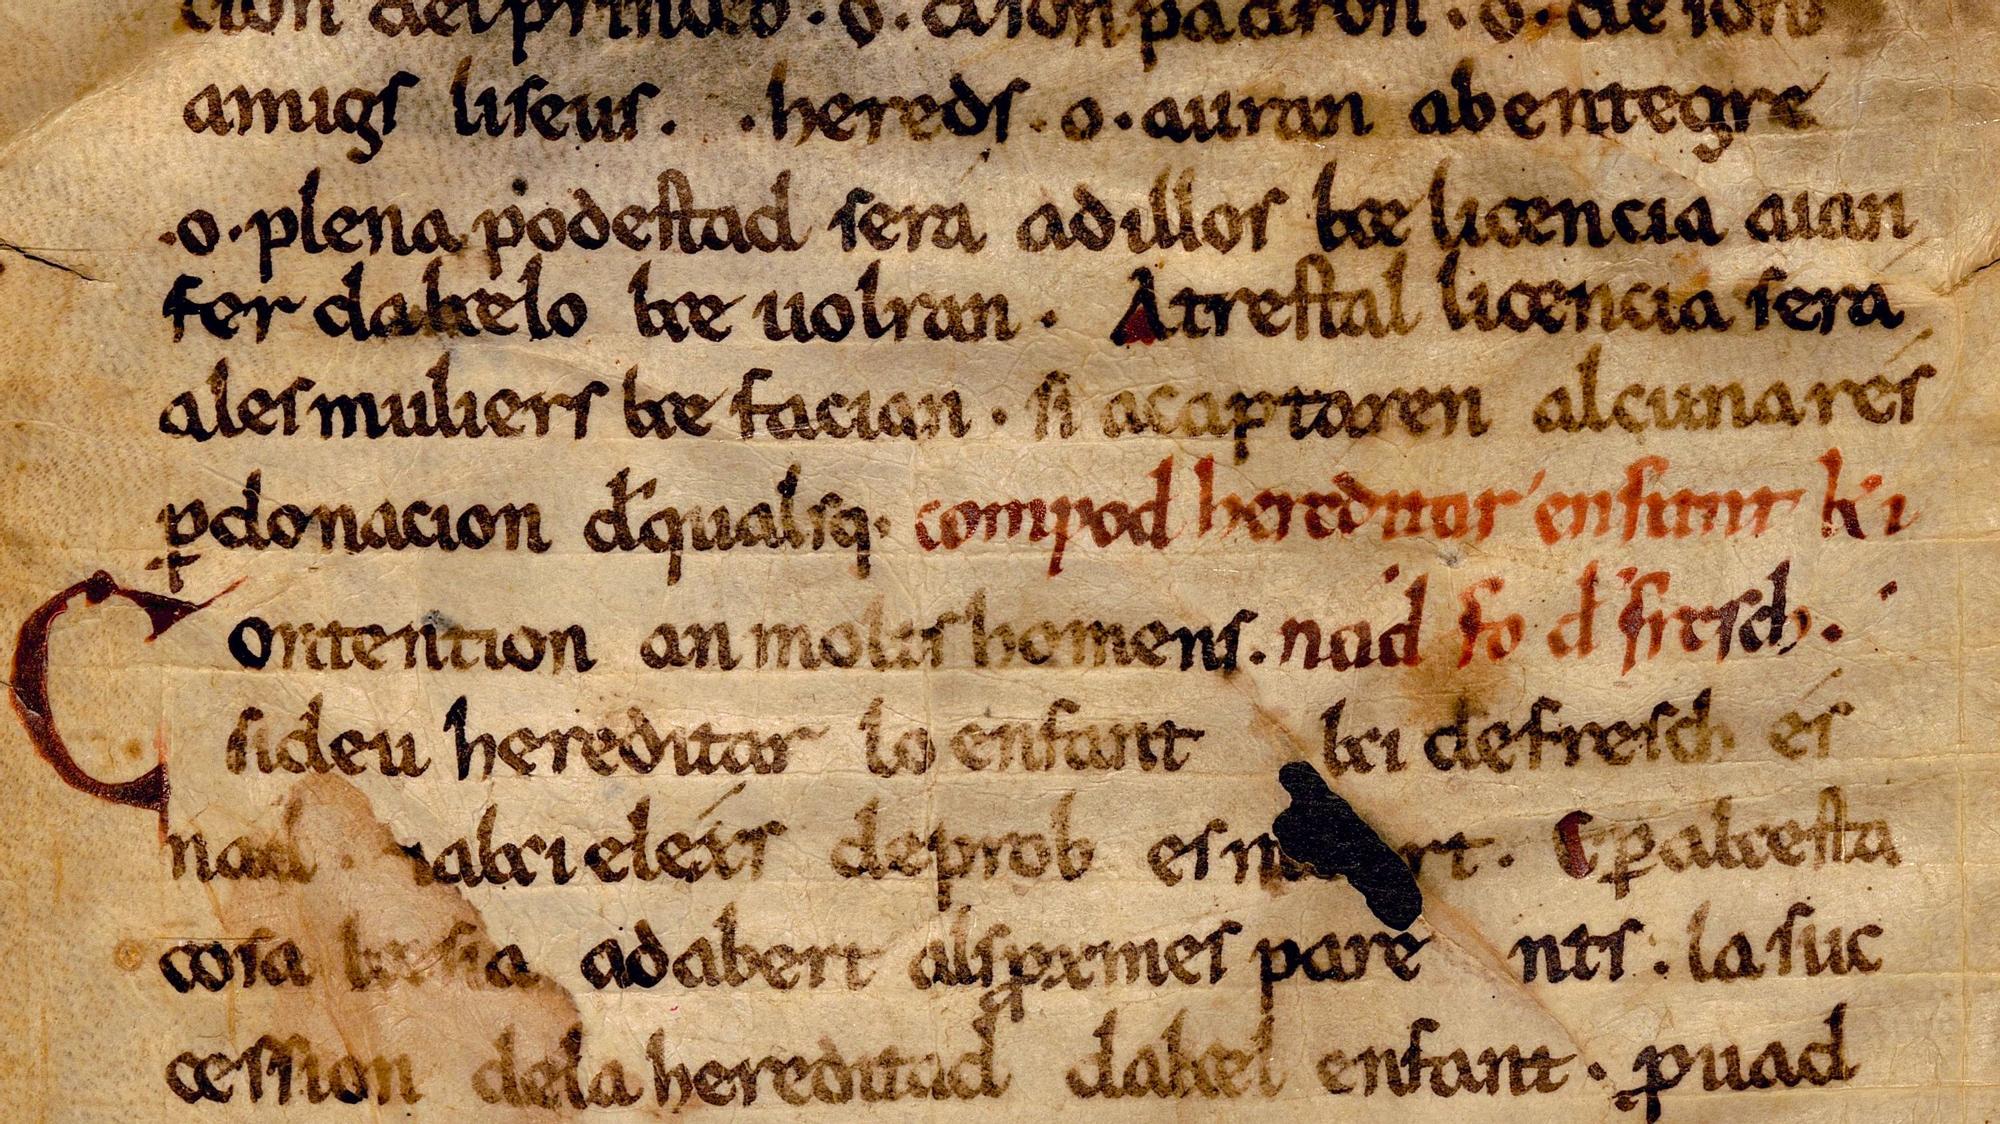 cion del princeb · o · dson padron · o · de sons
amigs liseus. · hereds · o · auran abentegre
· o · plena podestad sera ad illos ke licencia aian
fer dakelo ke uolran · Atrestal licencia sera
ales muliers ke facian · si acaptaren alcuna res
ꝑ donacion d' qualsq · com pod hereditar enfant k' i
Contention an molts homens. nad fo d' fresch ·
si deu hereditar lo enfant ki de fresch es
nad · aki eleis de prob es m rt · E ꝑ akesta
cosa ke sia ad abert als ꝓxmes pare nts · la suc
cession de la hereditad dakel enfant · ꝑ uad